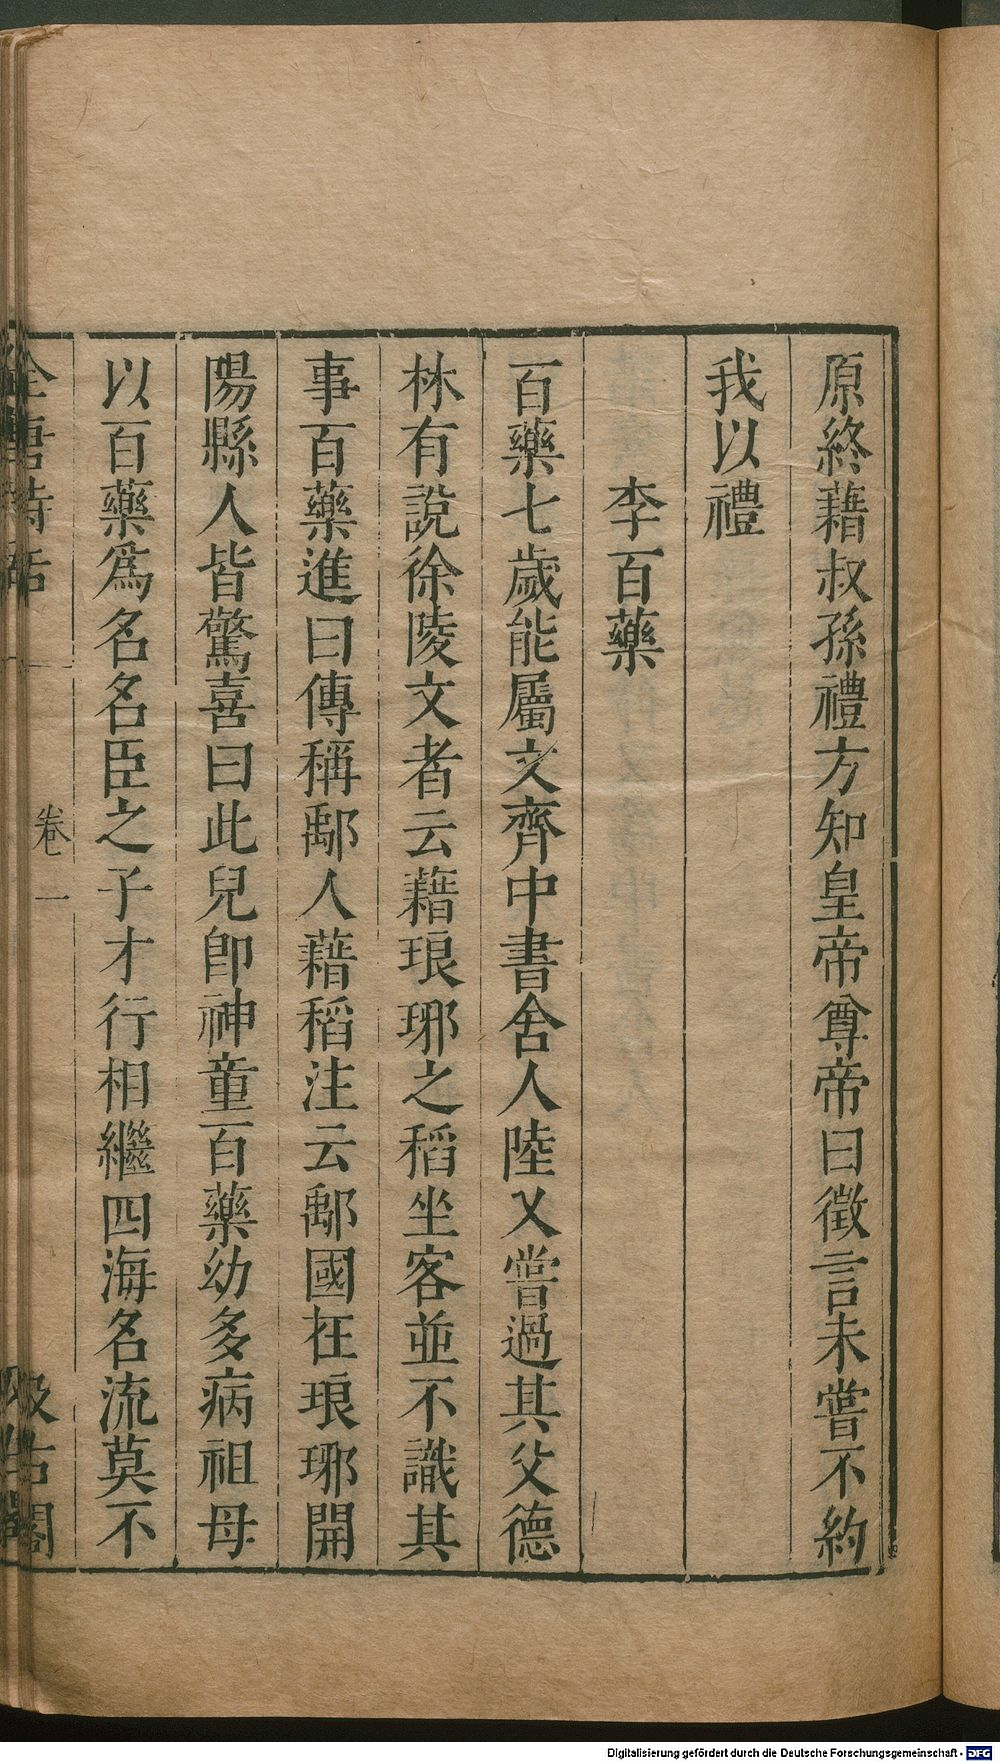 原終藉叔孫禮方知皇帝尊帝曰徵言未嘗不約
我以禮
李百藥
百藥七歲能屬文齊中書舍人陸乂嘗過其父德
林有說徐陵文者云藉琅琊之稻坐客並不識其
事百藥進曰傳稱鄅人藉稻注云鄅國在琅琊開
陽縣人皆驚喜曰此兒卽神童百藥幼多病祖母
以百藥爲名名臣之子才行相繼四海名流莫不
全唐詩話
卷一
汲古閣
Digitalisierung gefördert durch die Deutsche Forschungsgemeinschaft - DFG